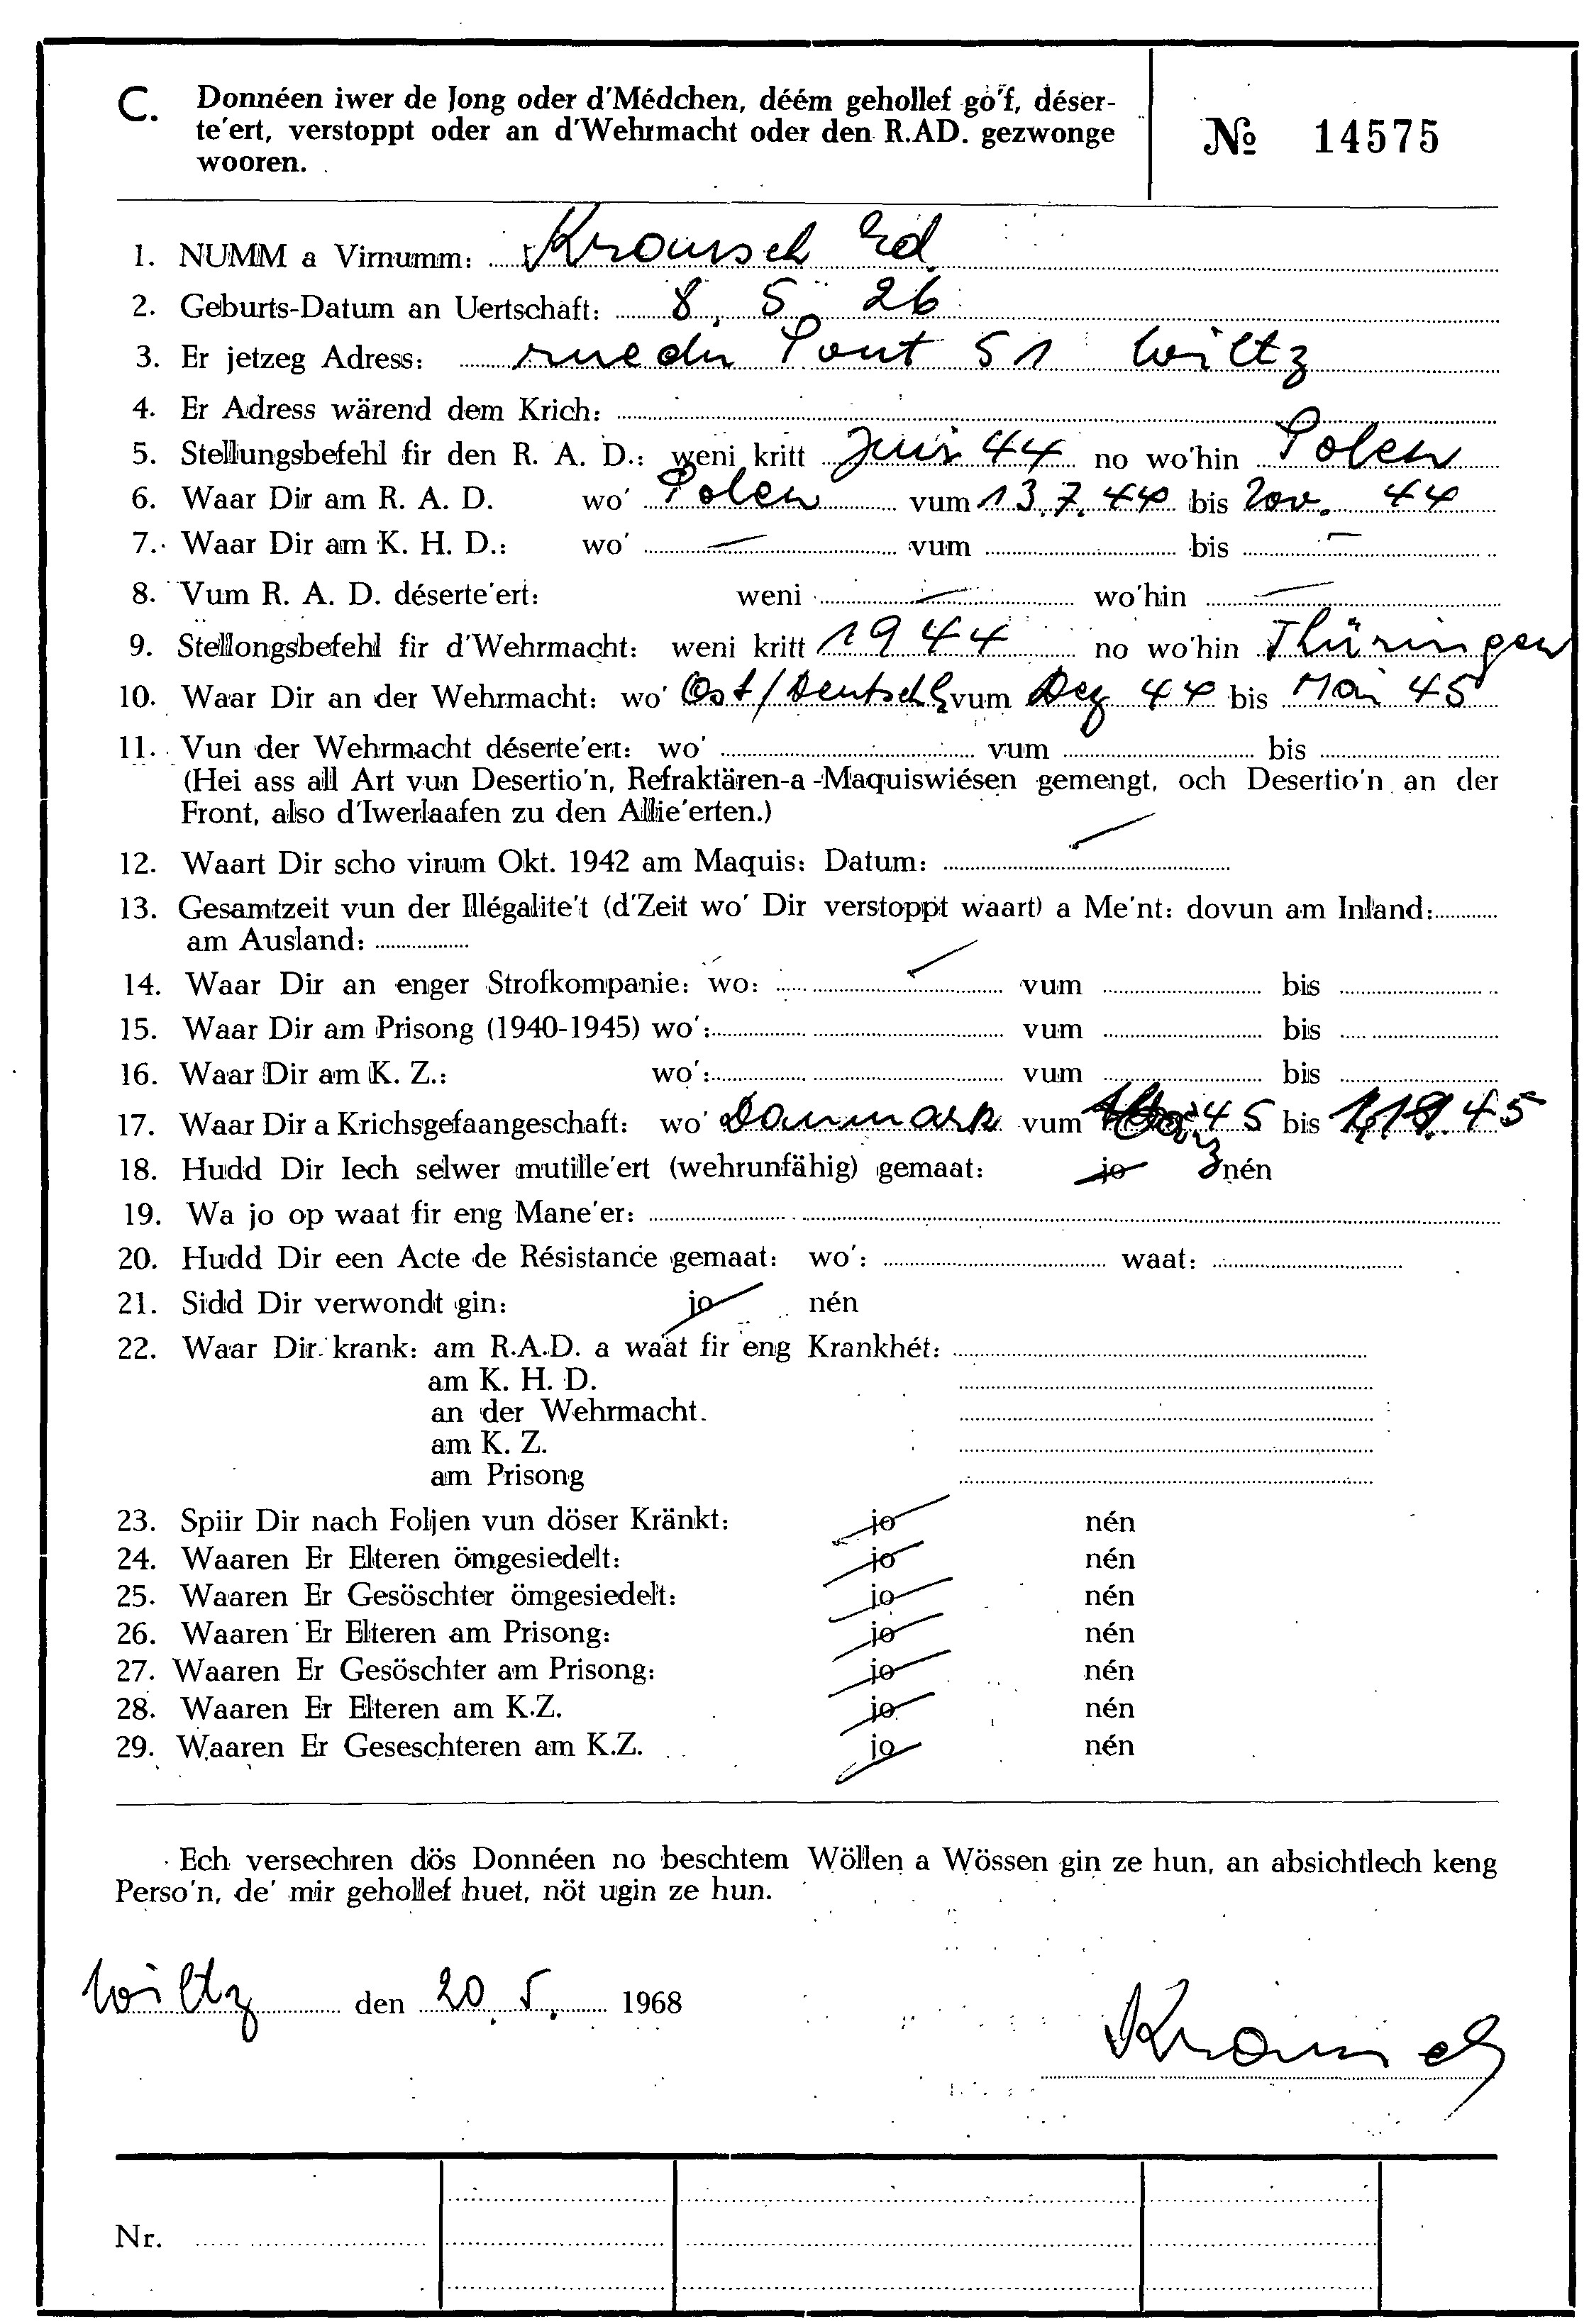 C. Donnéen iwer de Jong oder d'Médchen, déém gehollef go'f, déser-
te'ert, verstoppt oder an d'Wehrmacht oder den R.AD. gezwonge
wooren.
№ 14575
1. NUMM a Virnumm: Krousch Ed.
2. Geburts-Datum an Uertschaft: 8. 5. 26
3. Er jetzeg Adress: rue du Pont 51 Wiltz
4. Er Adress wärend dem Krich:
5. Stellungsbefehl fir den R. A. D.: weni kritt Juni 44 no wo'hin Polen
6. Waar Dir am R. A. D. wo' Polen vum 13.7.44 bis Nov. 44
7. Waar Dir am K. H. D.: wo' — vum bis —
8. Vum R. A. D. déserte'ert: weni — wo'hin —
9. Stellongsbefehl fir d'Wehrmacht: weni kritt 1944 no wo'hin Thüringen
10. Waar Dir an der Wehrmacht: wo' Ost/Deutschl. vum Dez 44 bis Mai 45
11. Vun der Wehrmacht déserte'ert: wo' vum bis
(Hei ass all Art vun Desertio'n, Refraktären-a-Maquiswiésen gemengt, och Desertio'n an der
Front, also d'Iwerlaafen zu den Allie'erten.)
12. Waart Dir scho virum Okt. 1942 am Maquis: Datum:
13. Gesamtzeit vun der Illégalite't (d'Zeit wo' Dir verstoppt waart) a Me'nt: dovun am Inland:
am Ausland:
14. Waar Dir an enger Strofkompanie: wo: vum bis
15. Waar Dir am Prisong (1940-1945) wo': vum bis
16. Waar Dir am K. Z.: wo': vum bis
17. Waar Dir a Krichsgefaangeschaft: wo' Danmark vum 45 bis 45
18. Hudd Dir Iech selwer mutille'ert (wehrunfähig) gemaat: jo nén
19. Wa jo op waat fir eng Mane'er:
20. Hudd Dir een Acte de Résistance gemaat: wo': waat:
21. Sidd Dir verwondt gin: jo nén
22. Waar Dir krank: am R.A.D. a waat fir eng Krankhét:
am K. H. D.
an der Wehrmacht.
am K. Z.
am Prisong
23. Spiir Dir nach Foljen vun döser Kränkt: jo nén
24. Waaren Er Elteren ömgesiedelt: jo nén
25. Waaren Er Gesöschter ömgesiedelt: jo nén
26. Waaren Er Elteren am Prisong: jo nén
27. Waaren Er Gesöschter am Prisong: jo nén
28. Waaren Er Elteren am K.Z. jo nén
29. Waaren Er Geseschteren am K.Z. jo nén
Ech versechren dös Donnéen no beschtem Wöllen a Wössen gin ze hun, an absichtlech keng
Perso'n, de' mir gehollef huet, nöt ugin ze hun.
Wiltz den 20. 5. 1968
Krousch
Nr.